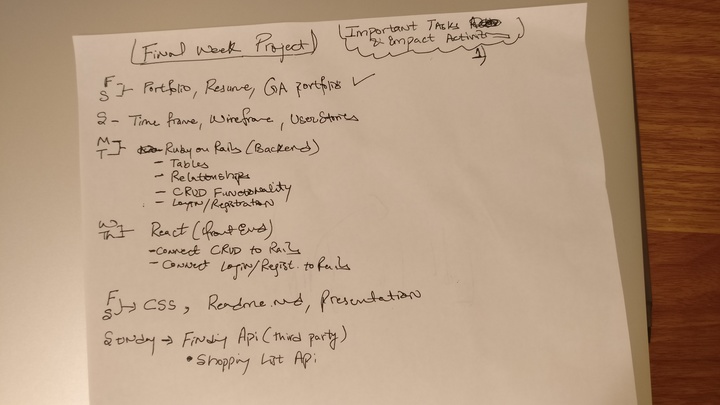 Final Week Project
Important Tasks
& Impact Activit
1)
F
S - Portfolio, Resume, GA portfolio ✓
S - Time frame, Wireframe, User Stories
M
T - Ruby on Rails (Backend)
- Tables
- Relationships
- CRUD Functionality
- Login/Registration
W
Th - React (front End)
- Connect CRUD to Rails
- Connect Login/Regist. to Rails
F
S → CSS, Readme.md, Presentation
Sunday → Finding Api (third party)
• Shopping List Api